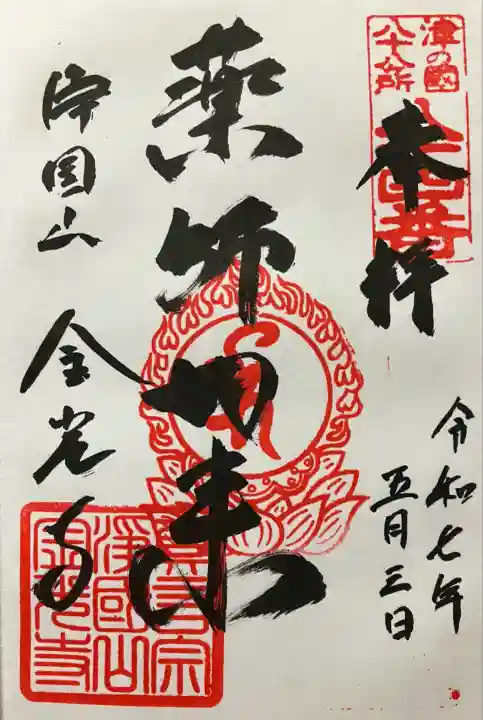 津の國
八十八所
奉拝
令和七年
五月三日
薬師如来
浄国山
金光寺
真言宗
浄國山
金光寺